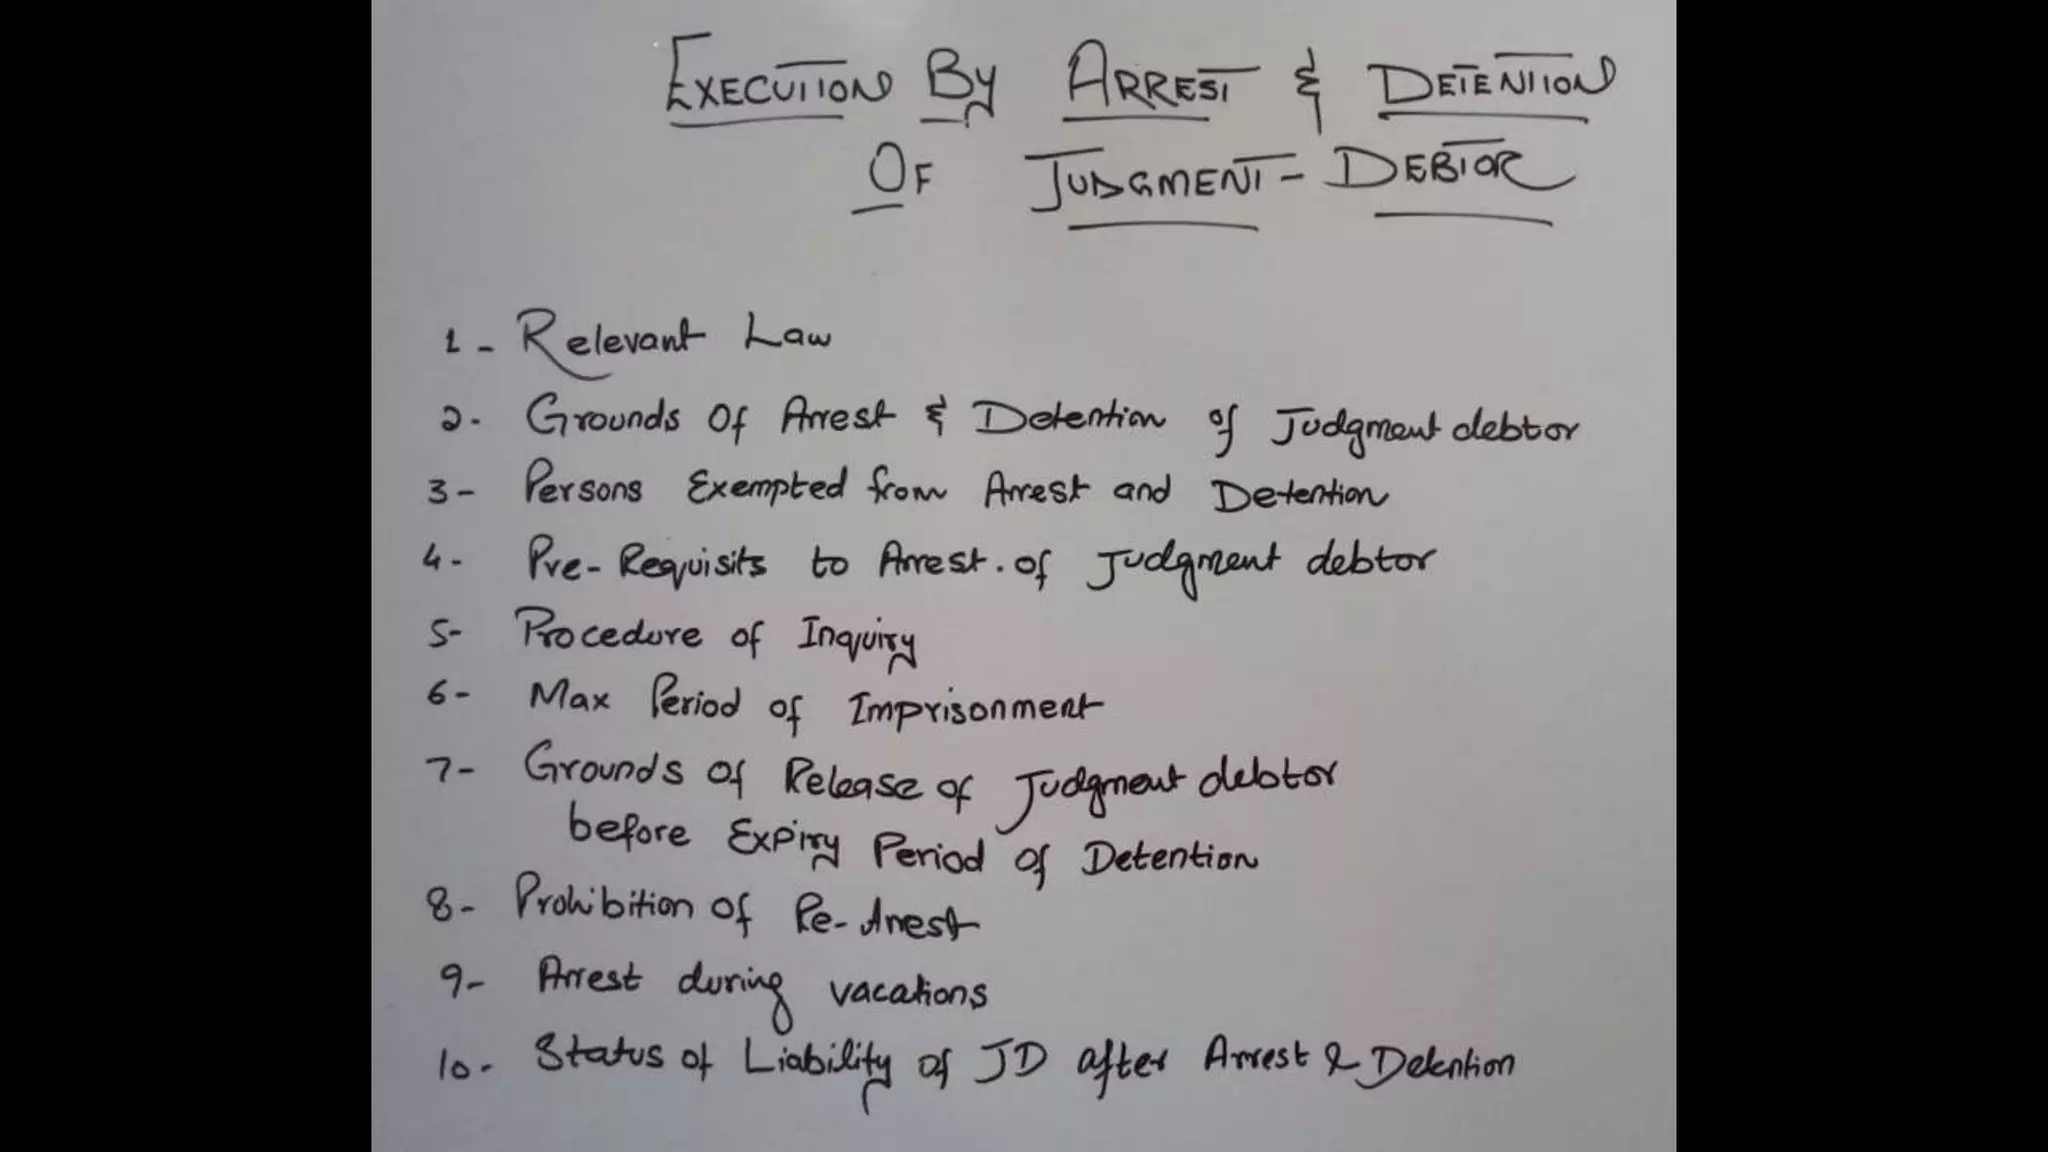 EXECUTION BY ARREST & DETENTION
OF JUDGMENT-DEBTOR
1- Relevant Law
2- Grounds Of Arrest & Detention of Judgment debtor
3- Persons Exempted from Arrest and Detention
4- Pre-Requisits to Arrest. of Judgment debtor
5- Procedure of Inquiry
6- Max Period of Imprisonment
7- Grounds of Release of Judgment debtor
before Expiry Period of Detention
8- Prohibition of Re-Arrest
9- Arrest during vacations
10- Status of Liability of JD after Arrest & Detention